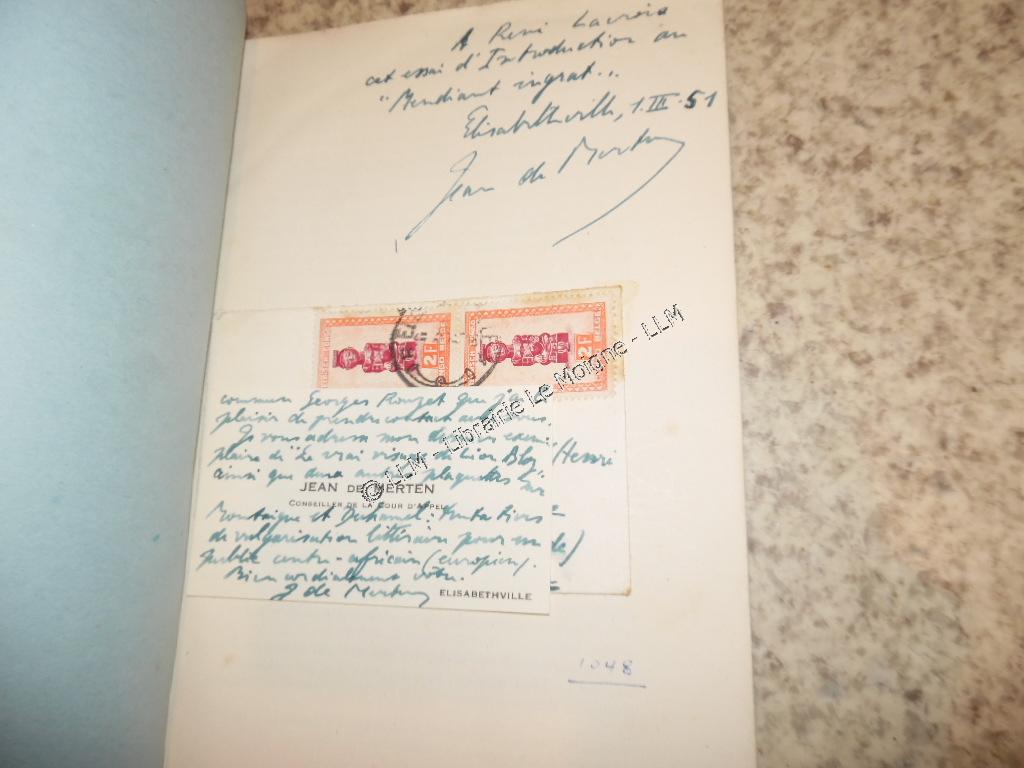 A René Lacroix
cet essai d'Introduction au
"Mendiant ingrat".
Elisabethville, 1.III.51
Jean de Merten
2F
2F
BELGISCH CONGO BELGE
commun Georges Rouzet que j'ai le
plaisir de prendre contact avec vous.
Je vous adresse mon dernier exem-
plaire du "Le vrai visage de Léon Bloy"
ainsi que deux autres plaquettes sur
/Henri
JEAN DE MERTEN
CONSEILLER DE LA COUR D'APPEL
Montaigne et Duhamel: tentatives
de vulgarisation littéraire pour un
public centre-africain (européen).
Bien cordialement vôtre.
J de Merten
ELISABETHVILLE
1048
© LLM - Librairie Le Moigne - LLM